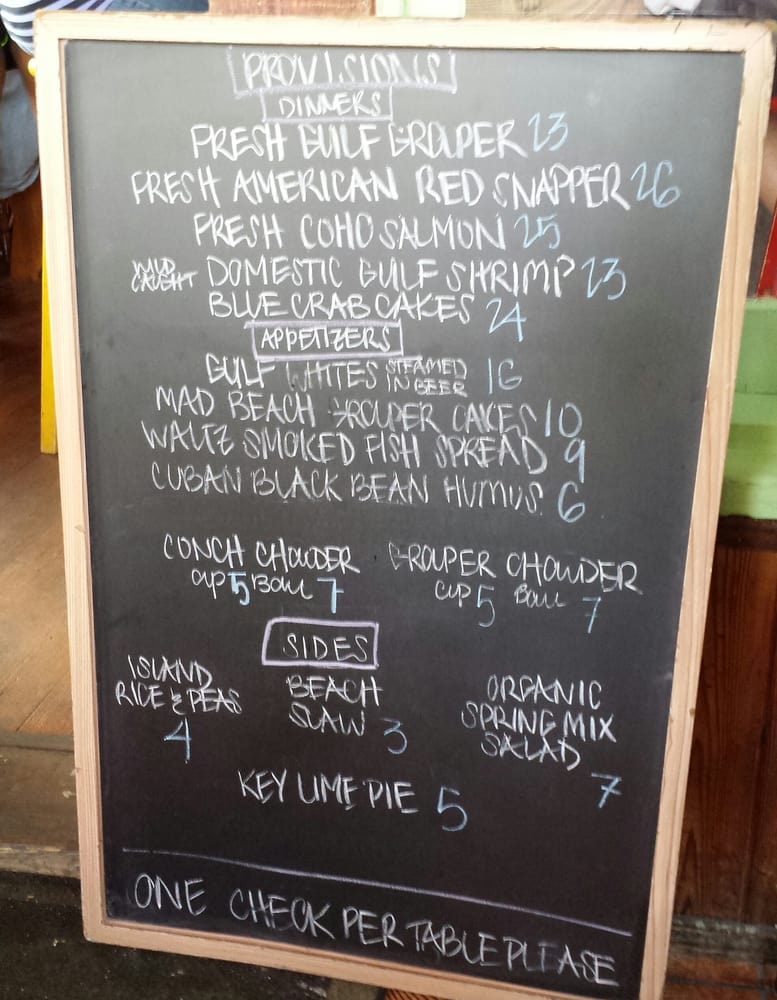 PROVISIONS
DINNERS
FRESH GULF GROUPER 23
FRESH AMERICAN RED SNAPPER 26
FRESH COHO SALMON 25
WILD CAUGHT DOMESTIC GULF SHRIMP 23
BLUE CRAB CAKES 24
APPETIZERS
GULF WHITES STEAMED IN BEER 16
MAD BEACH GROUPER CAKES 10
WALTZ SMOKED FISH SPREAD 9
CUBAN BLACK BEAN HUMUS 6
CONCH CHOWDER GROUPER CHOWDER
cup 5 Bowl 7 cup 5 Bowl 7
SIDES
ISLAND
RICE & PEAS
4
BEACH
SLAW 3
ORGANIC
SPRING MIX
SALAD
7
KEY LIME PIE 5
ONE CHECK PER TABLE PLEASE